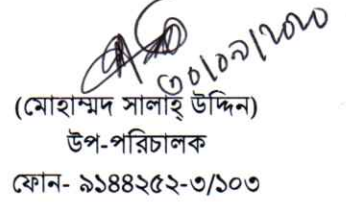 ৩০/০৯/২০২০
(মোহাম্মদ সালাহ্ উদ্দিন)
উপ-পরিচালক
ফোন- ৯১৪৪২৫২-৩/১০৩